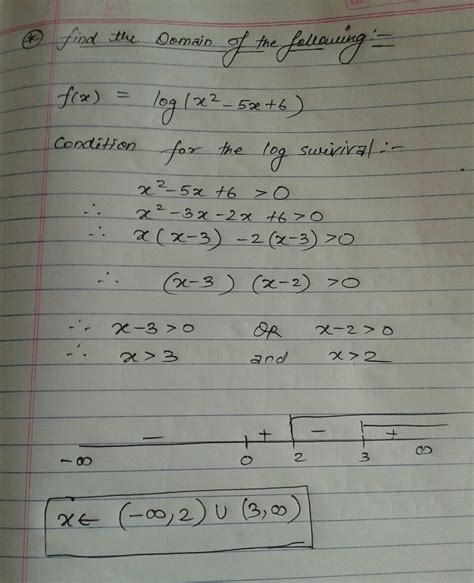 * find the Domain of the following:-
f(x) = log(x²-5x+6)
Condition for the log survival:-
x²-5x+6 >0
∴ x²-3x-2x+6>0
∴ x(x-3) -2(x-3)>0
∴ (x-3) (x-2) >0
∴ x-3>0 OR x-2>0
∴ x>3 and x>2
- + - +
-∞ 0 2 3 ∞
x← (-∞,2) ∪ (3,∞)